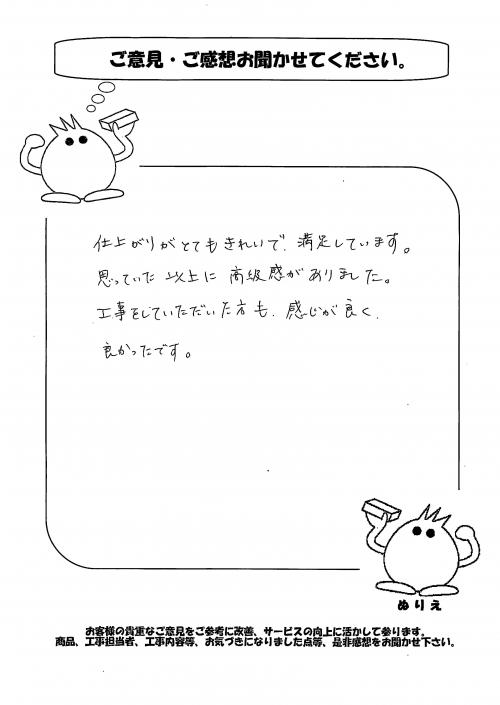 ご意見・ご感想お聞かせてください。
仕上がりがとてもきれいで、満足しています。
思っていた以上に高級感がありました。
工事をしていただいた方も、感じが良く、
良かったです。
ぬりえ
お客様の貴重なご意見をご参考に改善、サービスの向上に活かして参ります。
商品、工事担当者、工事内容等、お気づきになりました点等、是非感想をお聞かせ下さい。